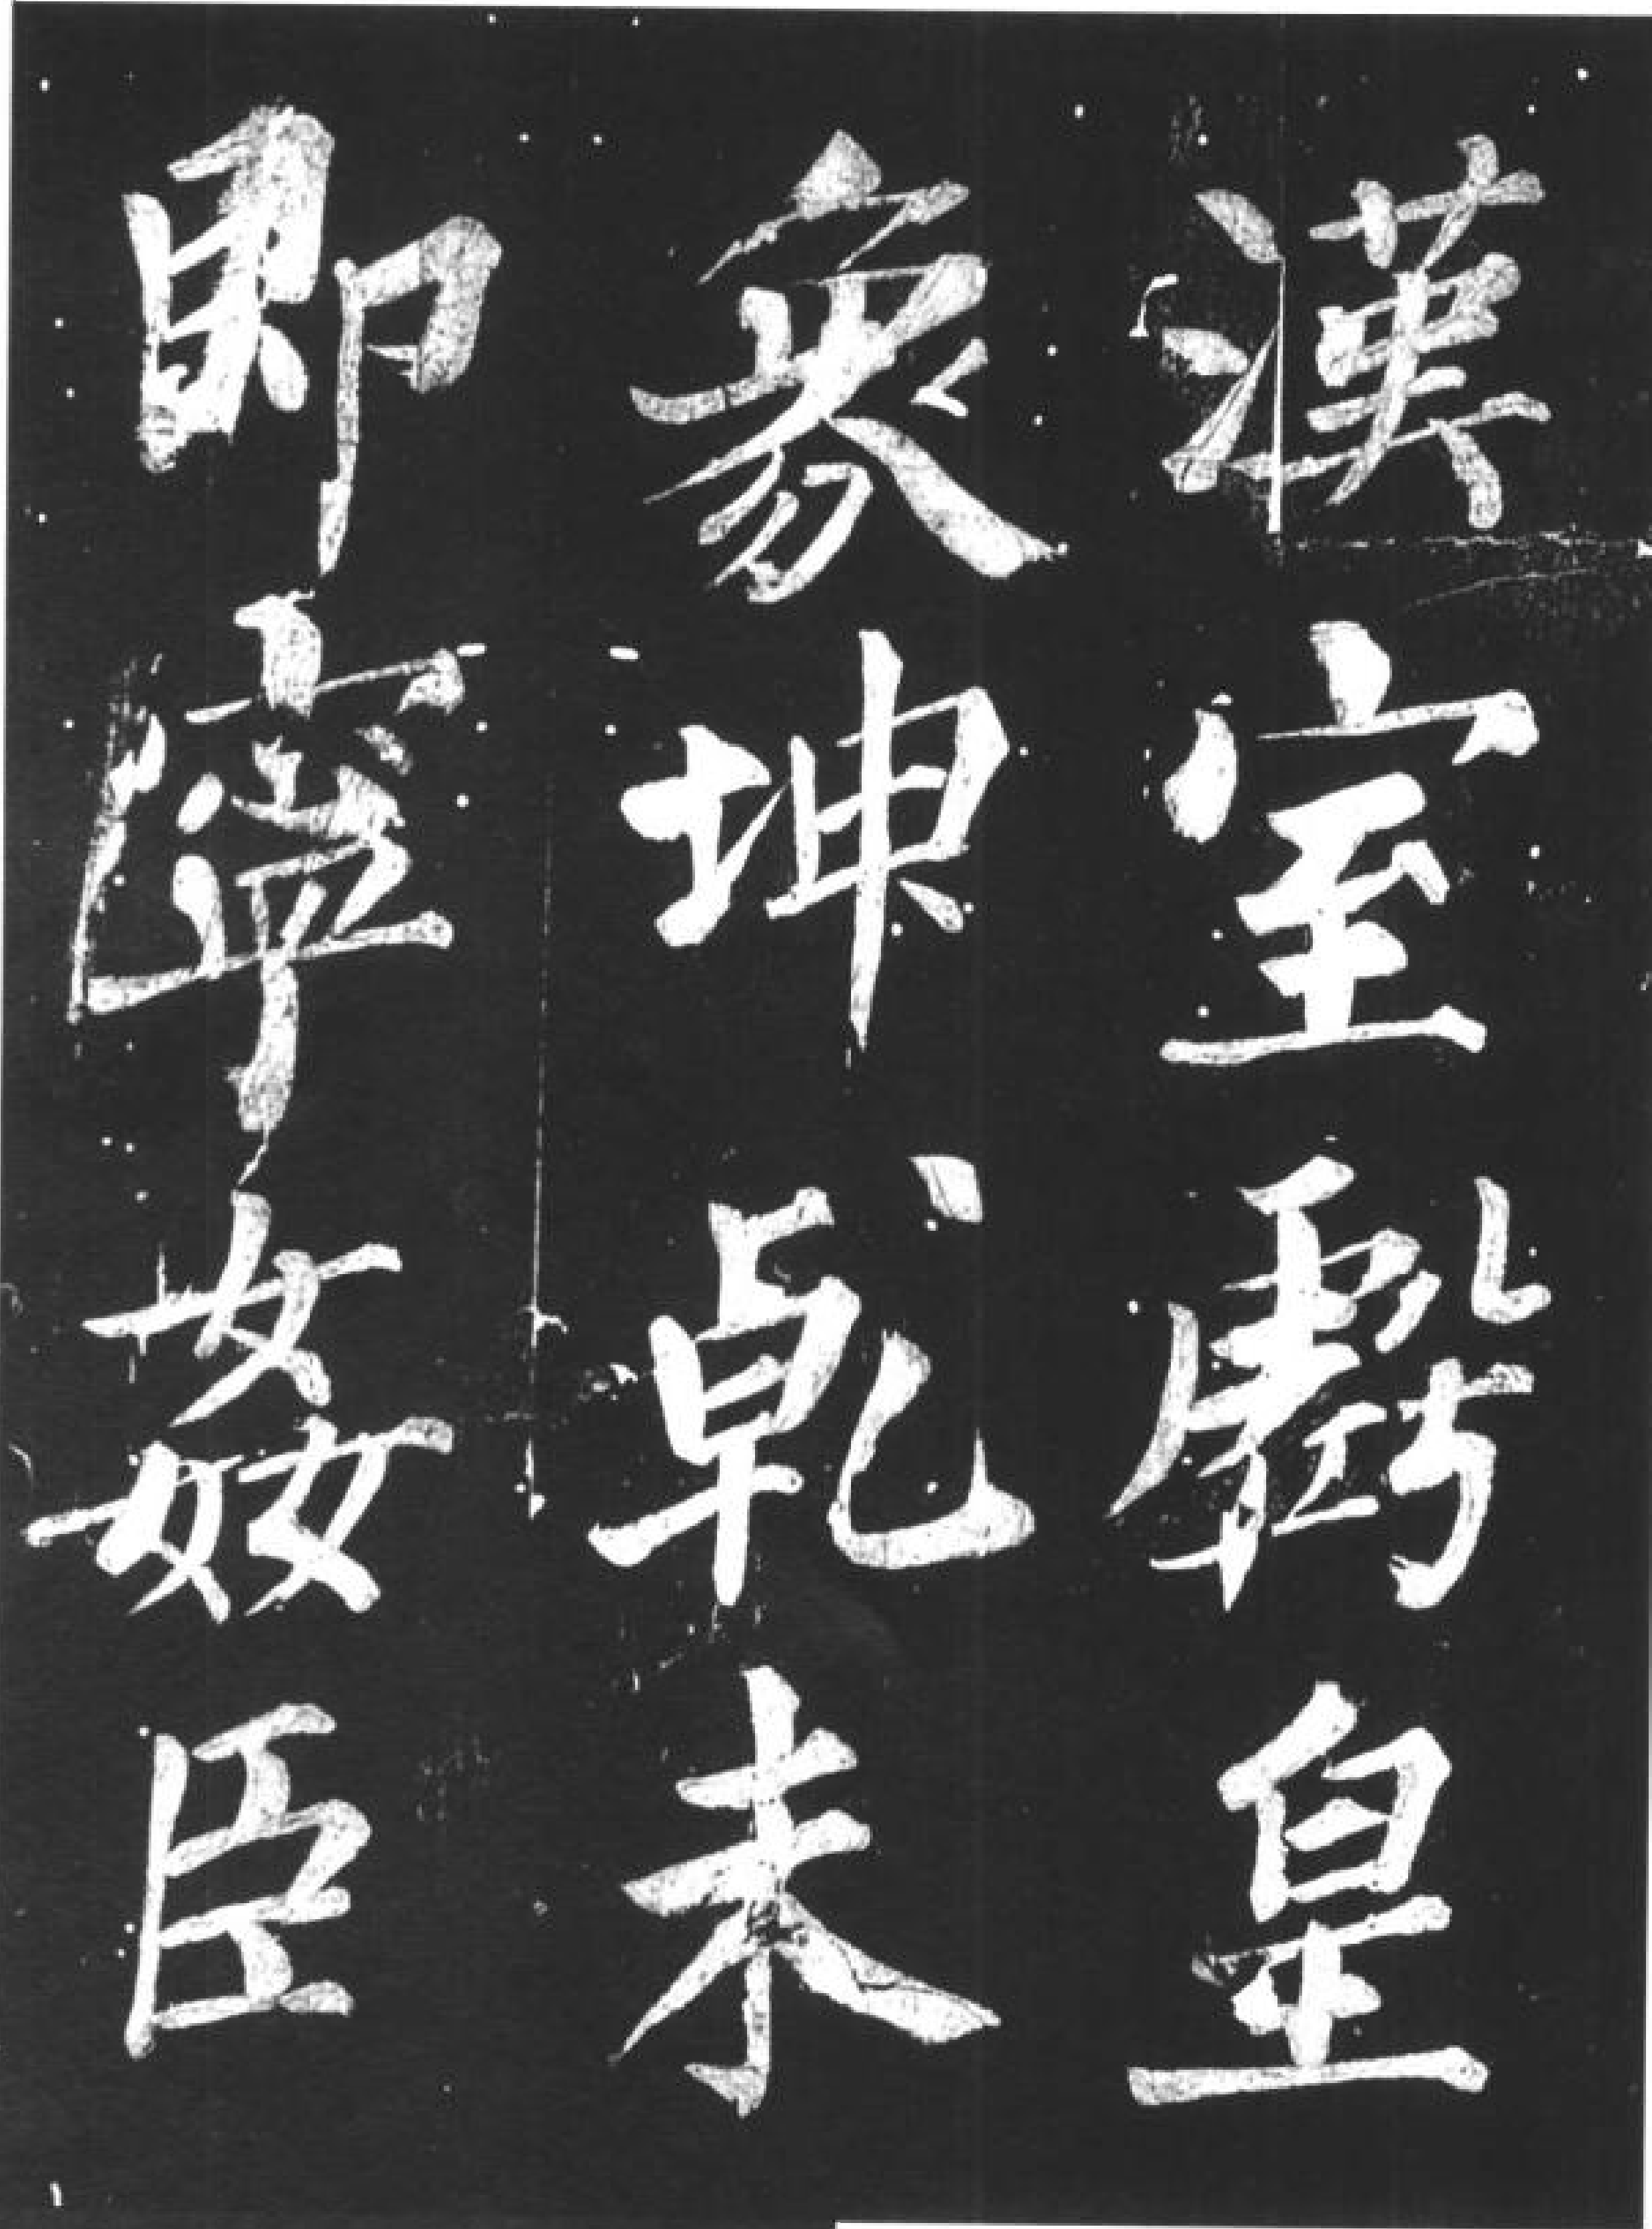 漢室虧皇
象坤乾未
即寧姦臣